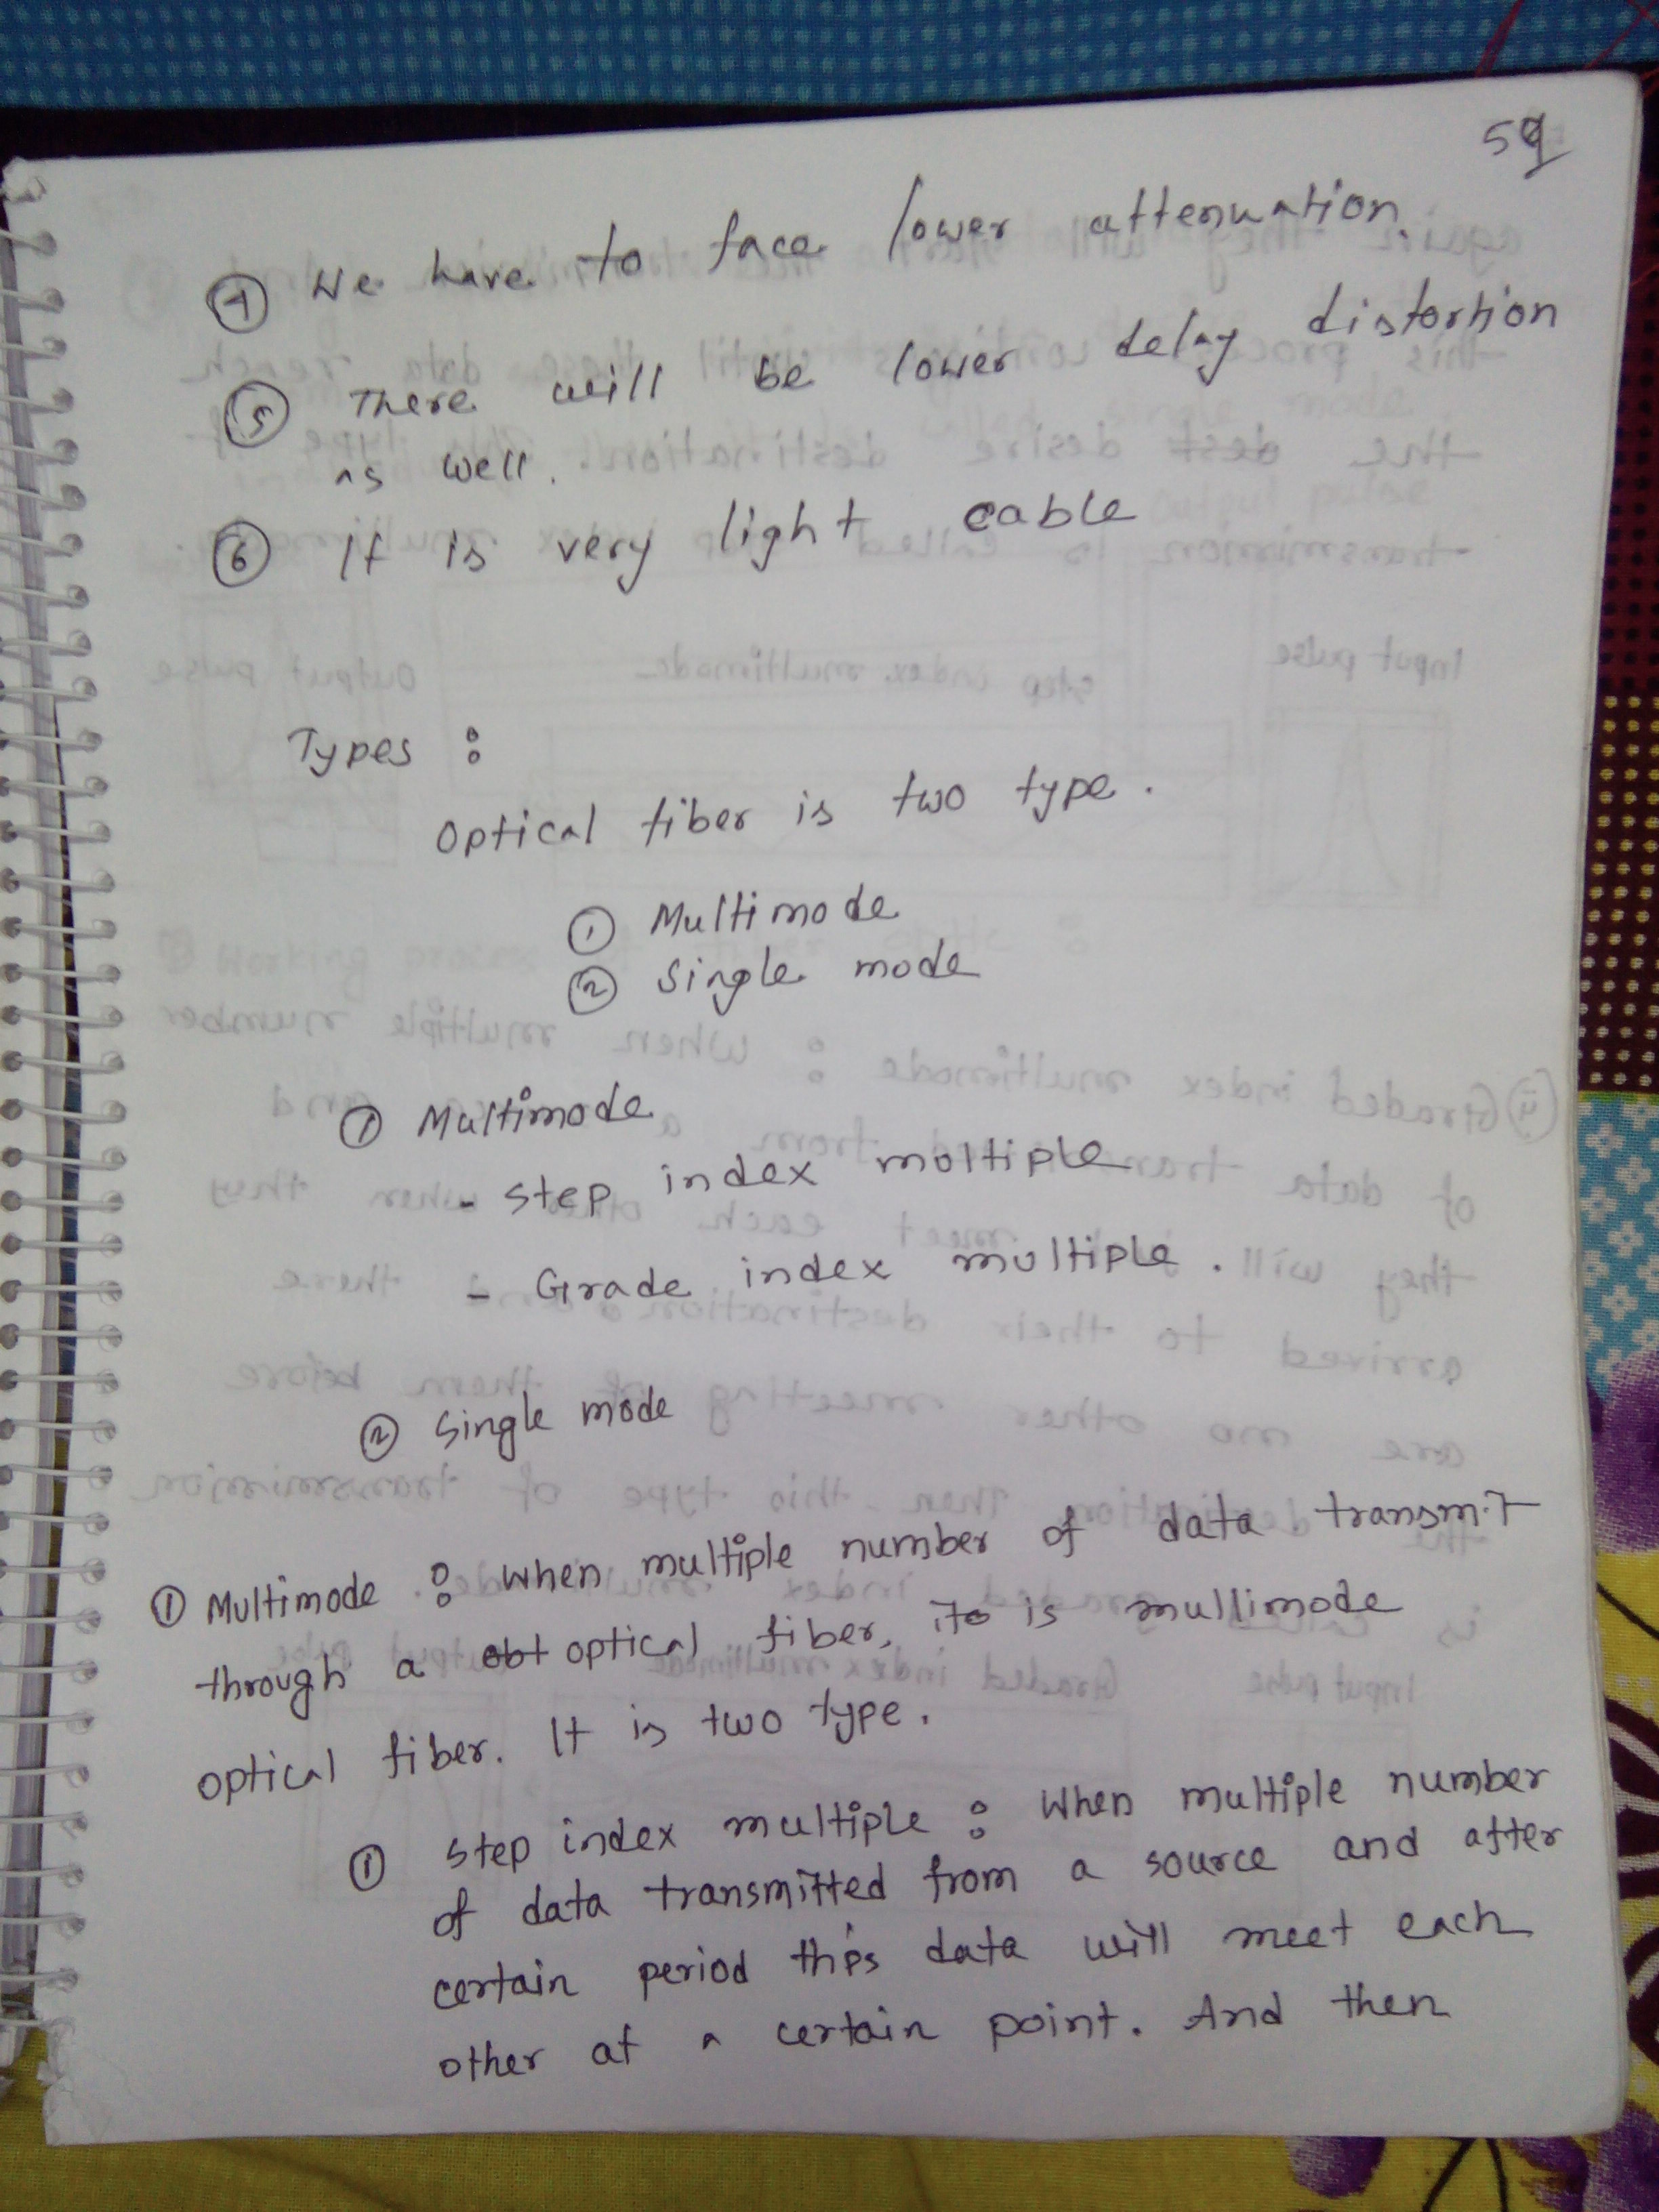 59
④ We have to face lower attenuation.
⑤ There will be lower delay distortion
as well.
⑥ It is very light cable
Types :
Optical fiber is two type.
① Multimode
② Single mode
① Multimode
- Step index moltiple
- Grade index multiple.
② Single mode
① Multimode : When multiple number of data transmit
through a obt optical fiber, ito is mullimode
optical fiber. It is two type.
① step index multiple : When multiple number
of data transmitted from a source and after
certain period this data will meet each
other at a certain point. And then